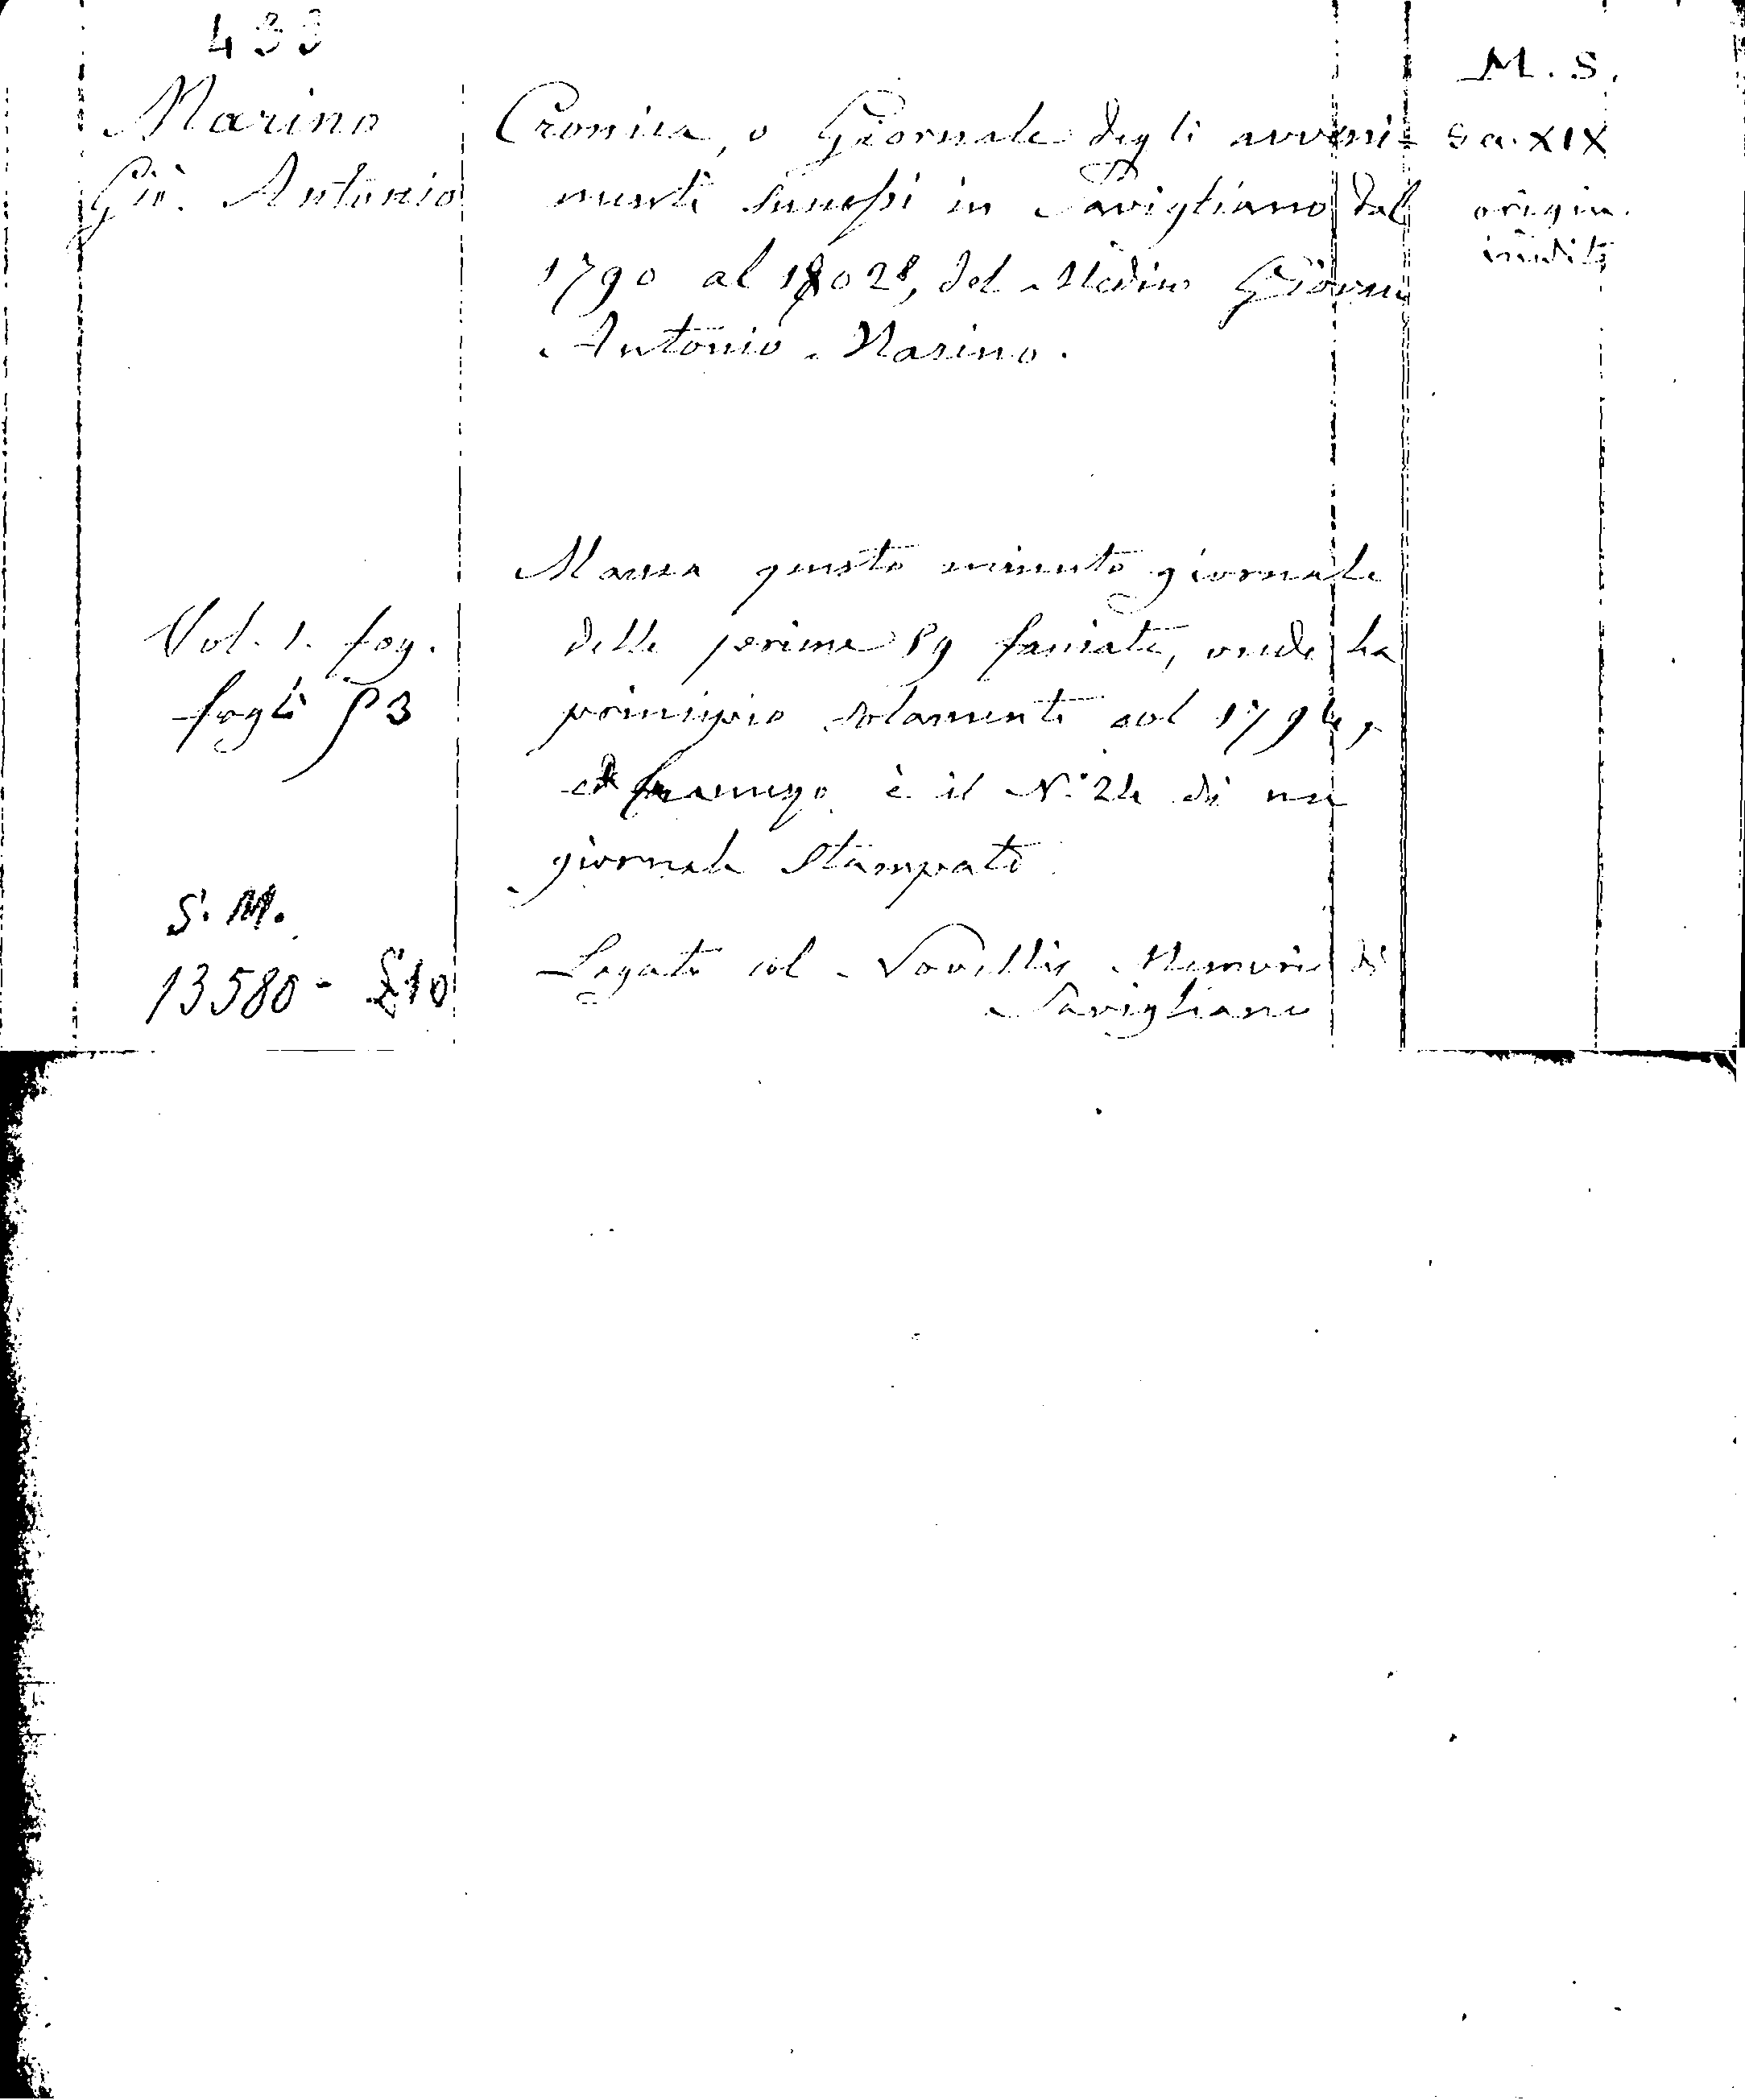 433
M. S.
Marino
Gio. Antonio
Cronica, o Giornale degli avveni-
menti successi in Savigliano dal
1790 al 1802, del Medico Giovan
Antonio Marino.
Sec. XIX
origin.
inedito
Manca questo minuto giornale
delle prime 59 facciate, onde ha
principio solamente col 1794,
ed framezzo è il N.° 24 di un
giornale stampato
Vol. 1. fog.
fogli 53
S. M.
13580 - £10
Legato col Novellis, Memorie di
Savigliano